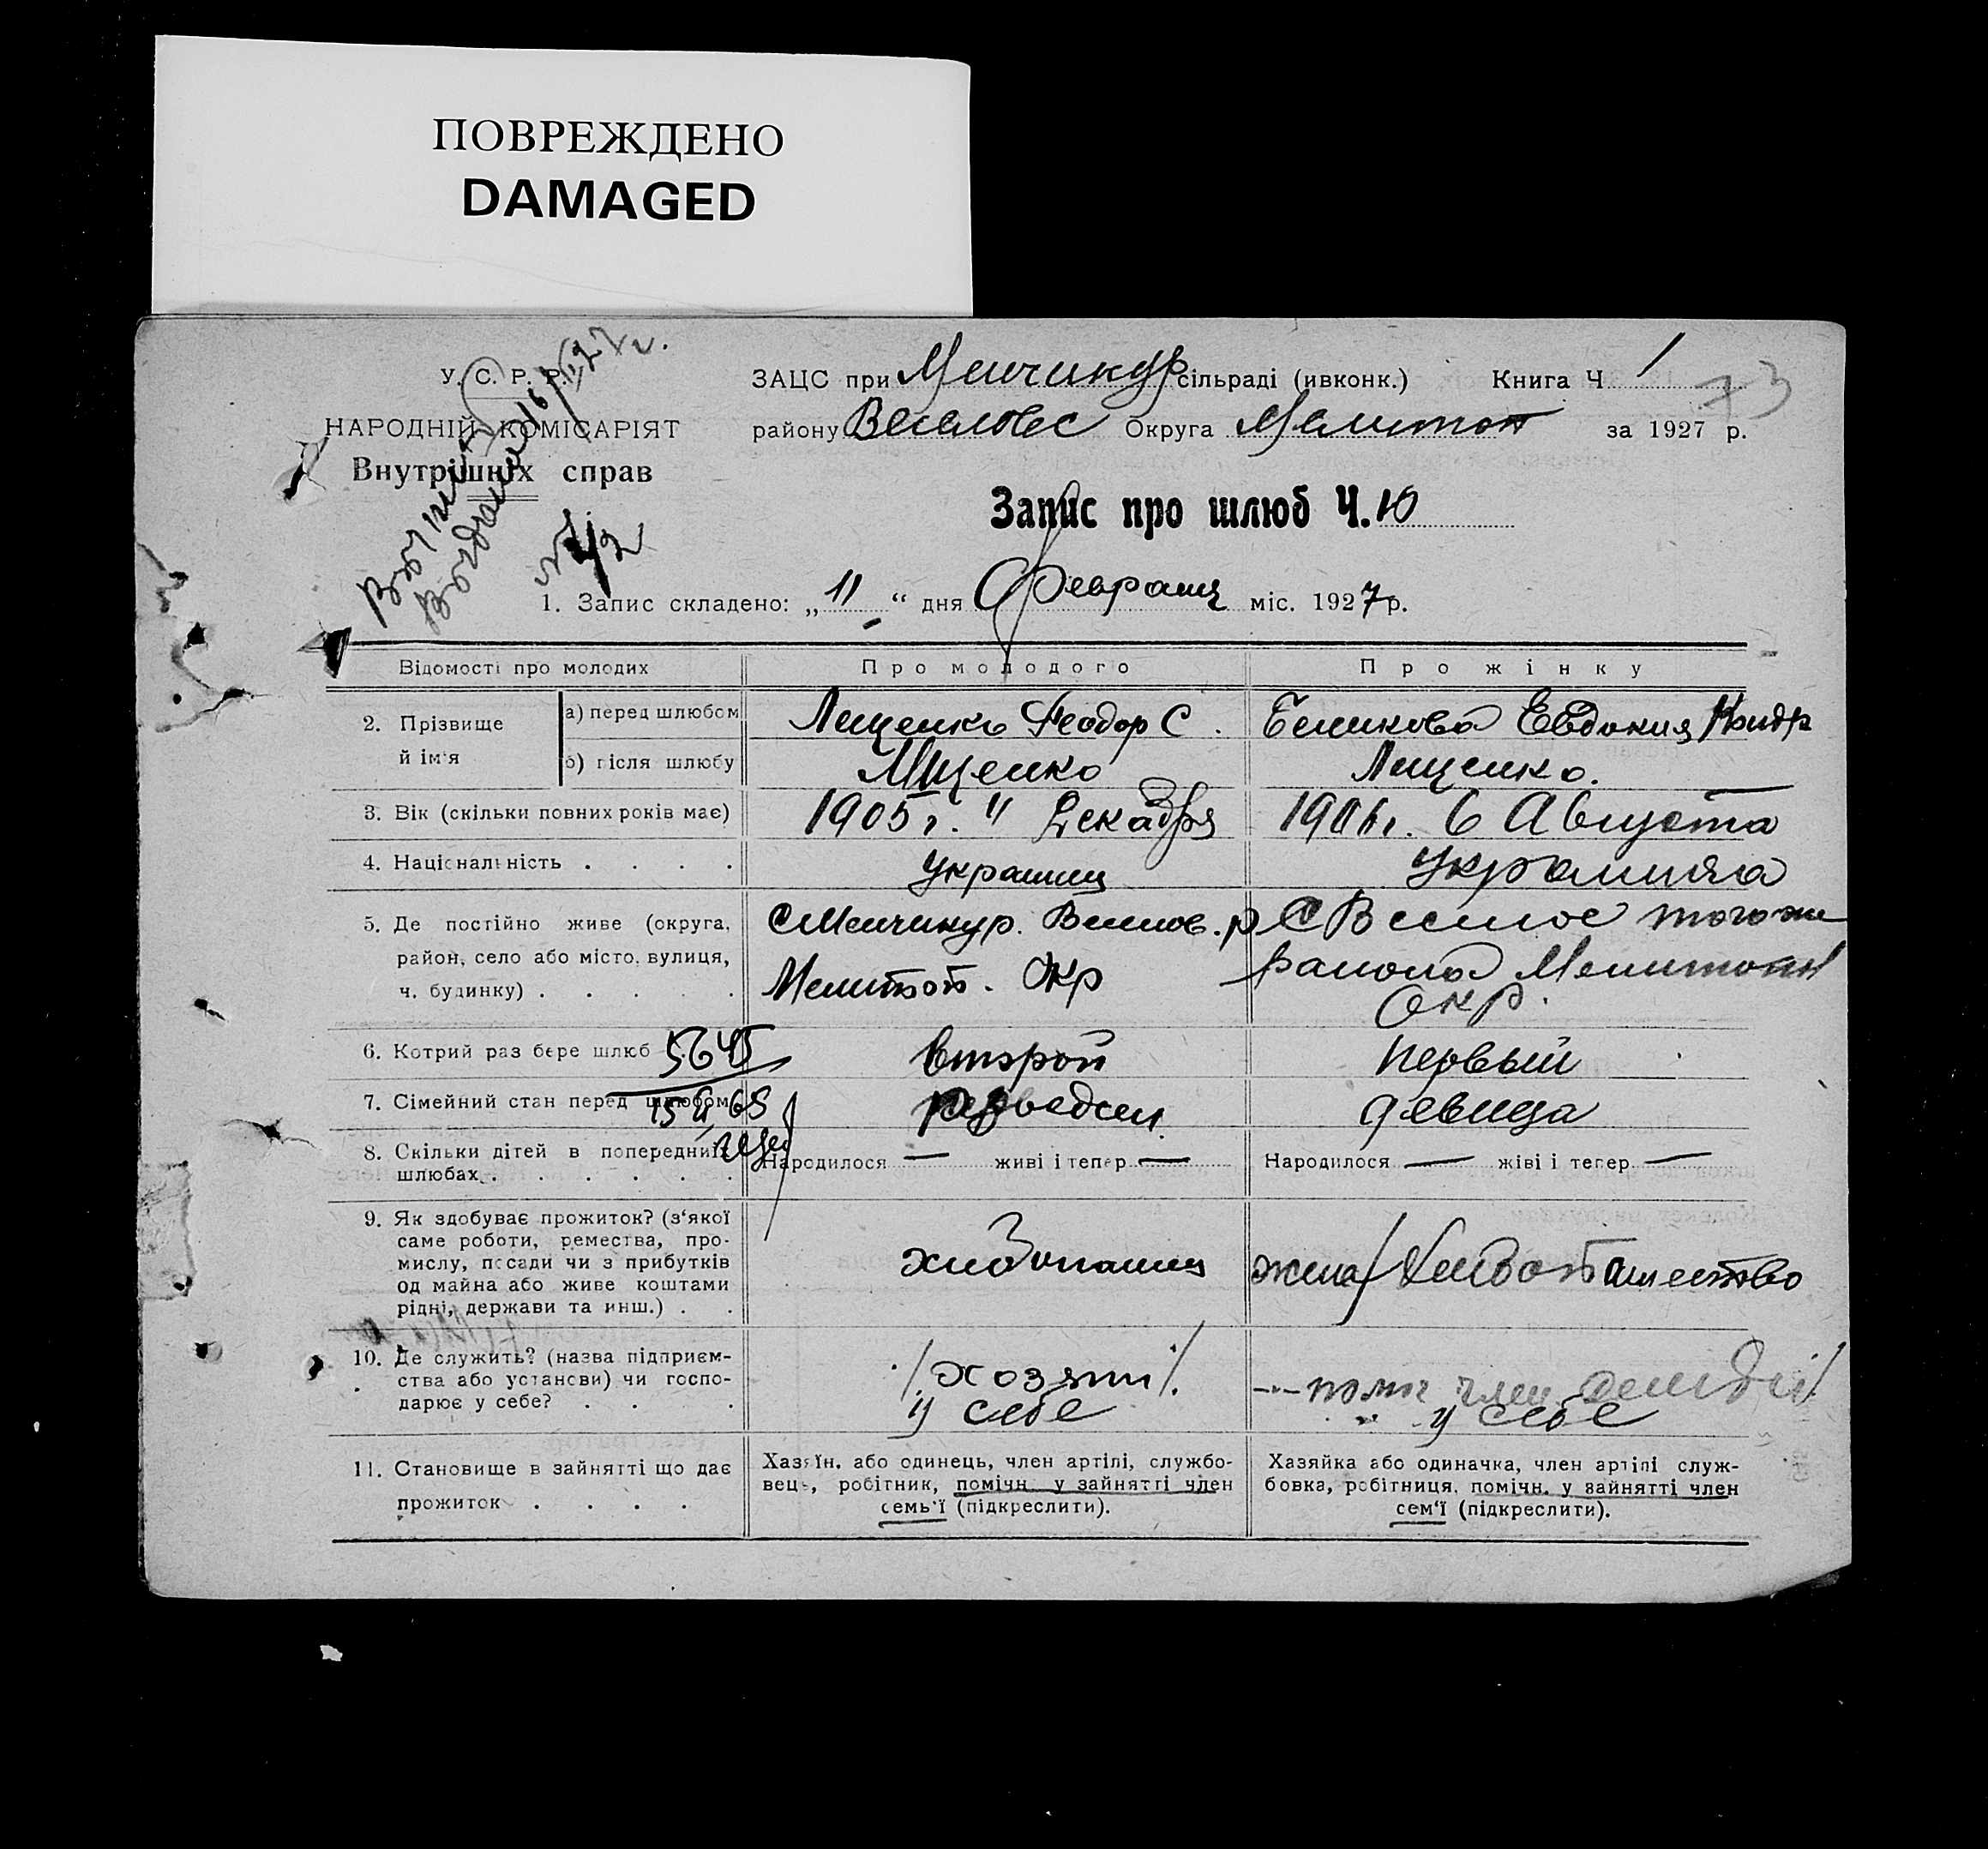 ПОВРЕЖДЕНО
DAMAGED
У. С. Р. Р.
НАРОДНІЙ КОМІСАРІЯТ
Внутрішніх справ
ЗАЦС при Менчикур сільраді (ивконк.) Книга Ч 1
73
району Веселовс Округа Мелитоп за 1927 р.
Запис про шлюб Ч. 10
№ 1/2
1. Запис складено: „ 11 “ дня Февраля міс. 1927 р.
Відомості про молодих Про молодого Про жінку
2. Прізвище й ім‘я
а) перед шлюбом Лещенко Феодор С. Беликова Евдокия
б) після шлюбу Лещенко Лещенко.
3. Вік (скільки повних років має) 1905 г. " Декабря 1906 г. 6 Августа
4. Національність . . . . украинец украинка
5. Де постійно живе (округа, С Менчикур. Веселов. р С Веселое того же
район, село або місто, вулиця, района Мелитоп
ч. будинку) . . . . . Мелитоп. Окр Окр.
6. Котрий раз бере шлюб 5645 второй первый
7. Сімейний стан перед шлюбом 15 65 разведен девица
8. Скільки дітей в попередніх
шлюбах. . . . . . . Народилося — живі і тепер — Народилося — жіві і тепер —
9. Як здобуває прожиток? (з‘якої
саме роботи, ремества, про-
мислу, посади чи з прибутків
од майна або живе коштами
рідні, держави та инш.) . .
10. Де служить? (назва підприєм- хозяин
ства або установи) чи госпо- у себе у себе
дарює у себе? . . .
11. Становище в зайнятті що дає
прожиток . . . .
Хазяїн, або одинець, член артілі, службо-
вець, робітник, помічн. у зайнятті член
семь‘ї (підкреслити).
Хазяйка або одиначка, член артілі служ-
бовка, робітниця, помічн. у зайнятті член
сем‘ї (підкреслити).